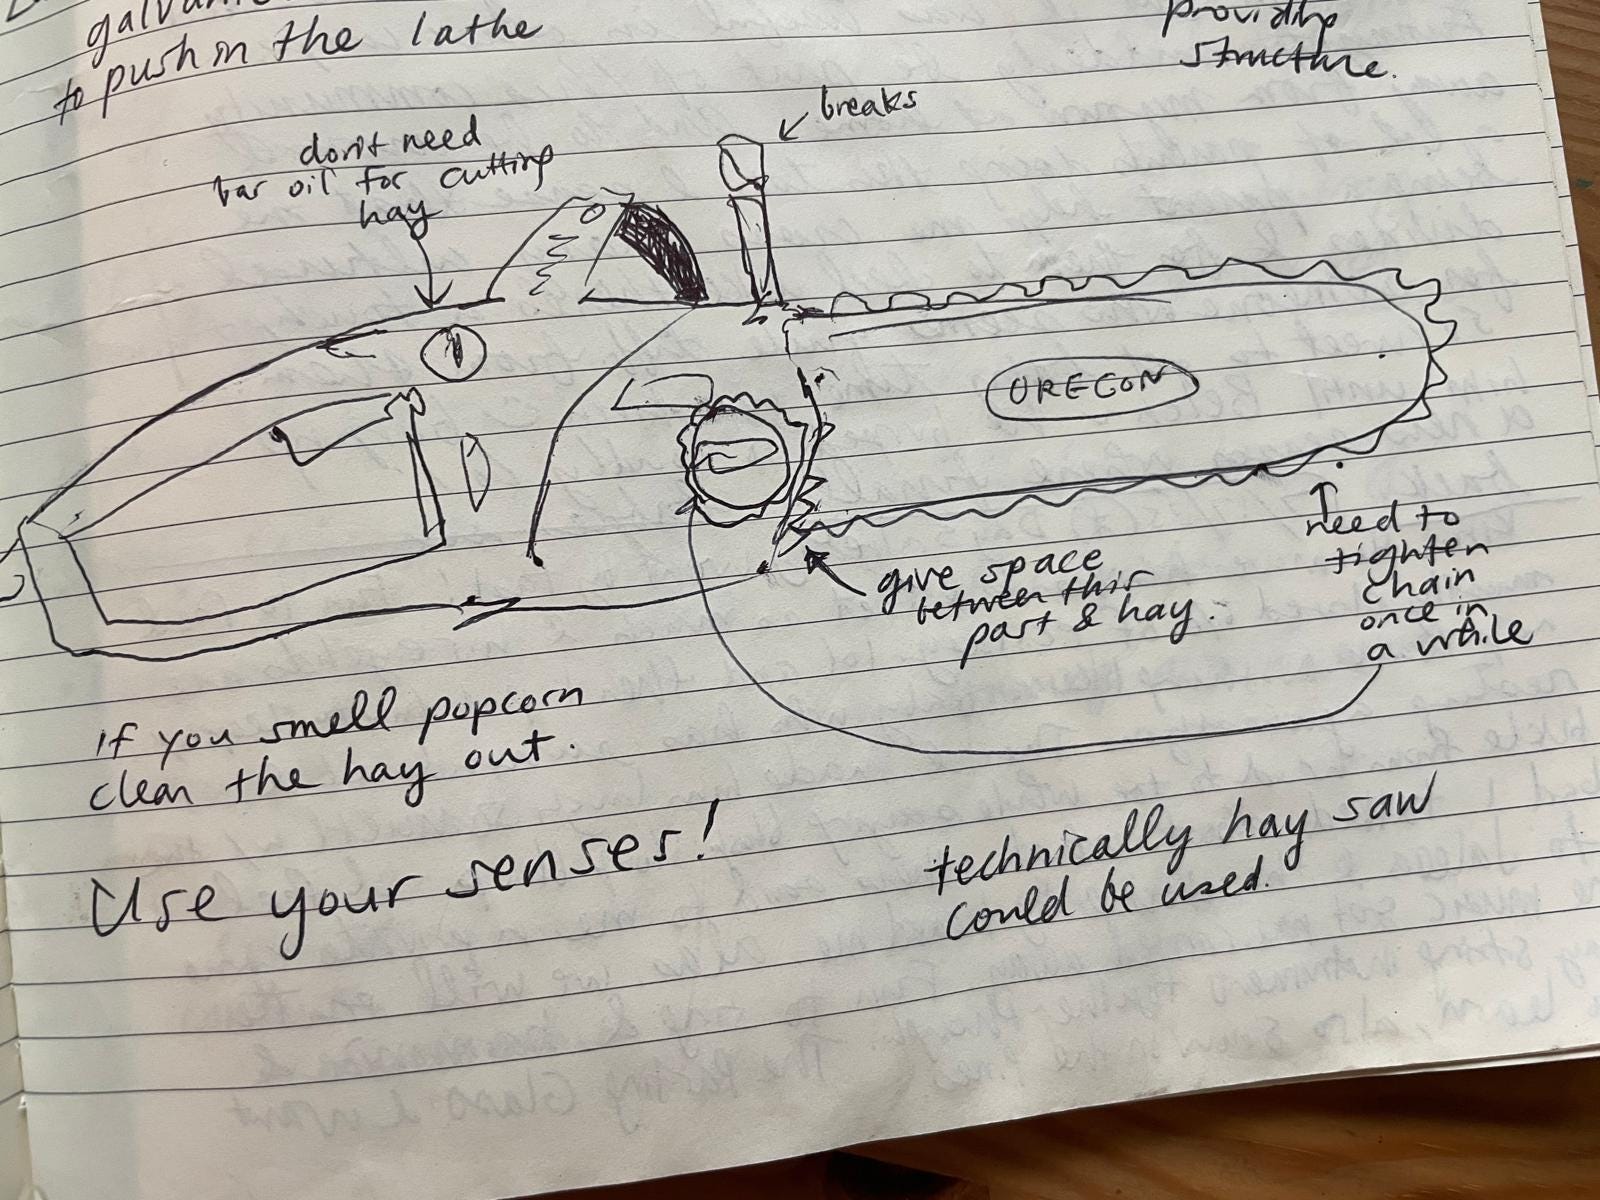 galvani
to push in the lathe
providing
structure.
breaks
don't need
bar oil for cutting
hay
OREGON
need to
tighten
chain
once in
a while
give space
between this
part & hay.
if you smell popcorn
clean the hay out.
Use your senses!
technically hay saw
could be used.